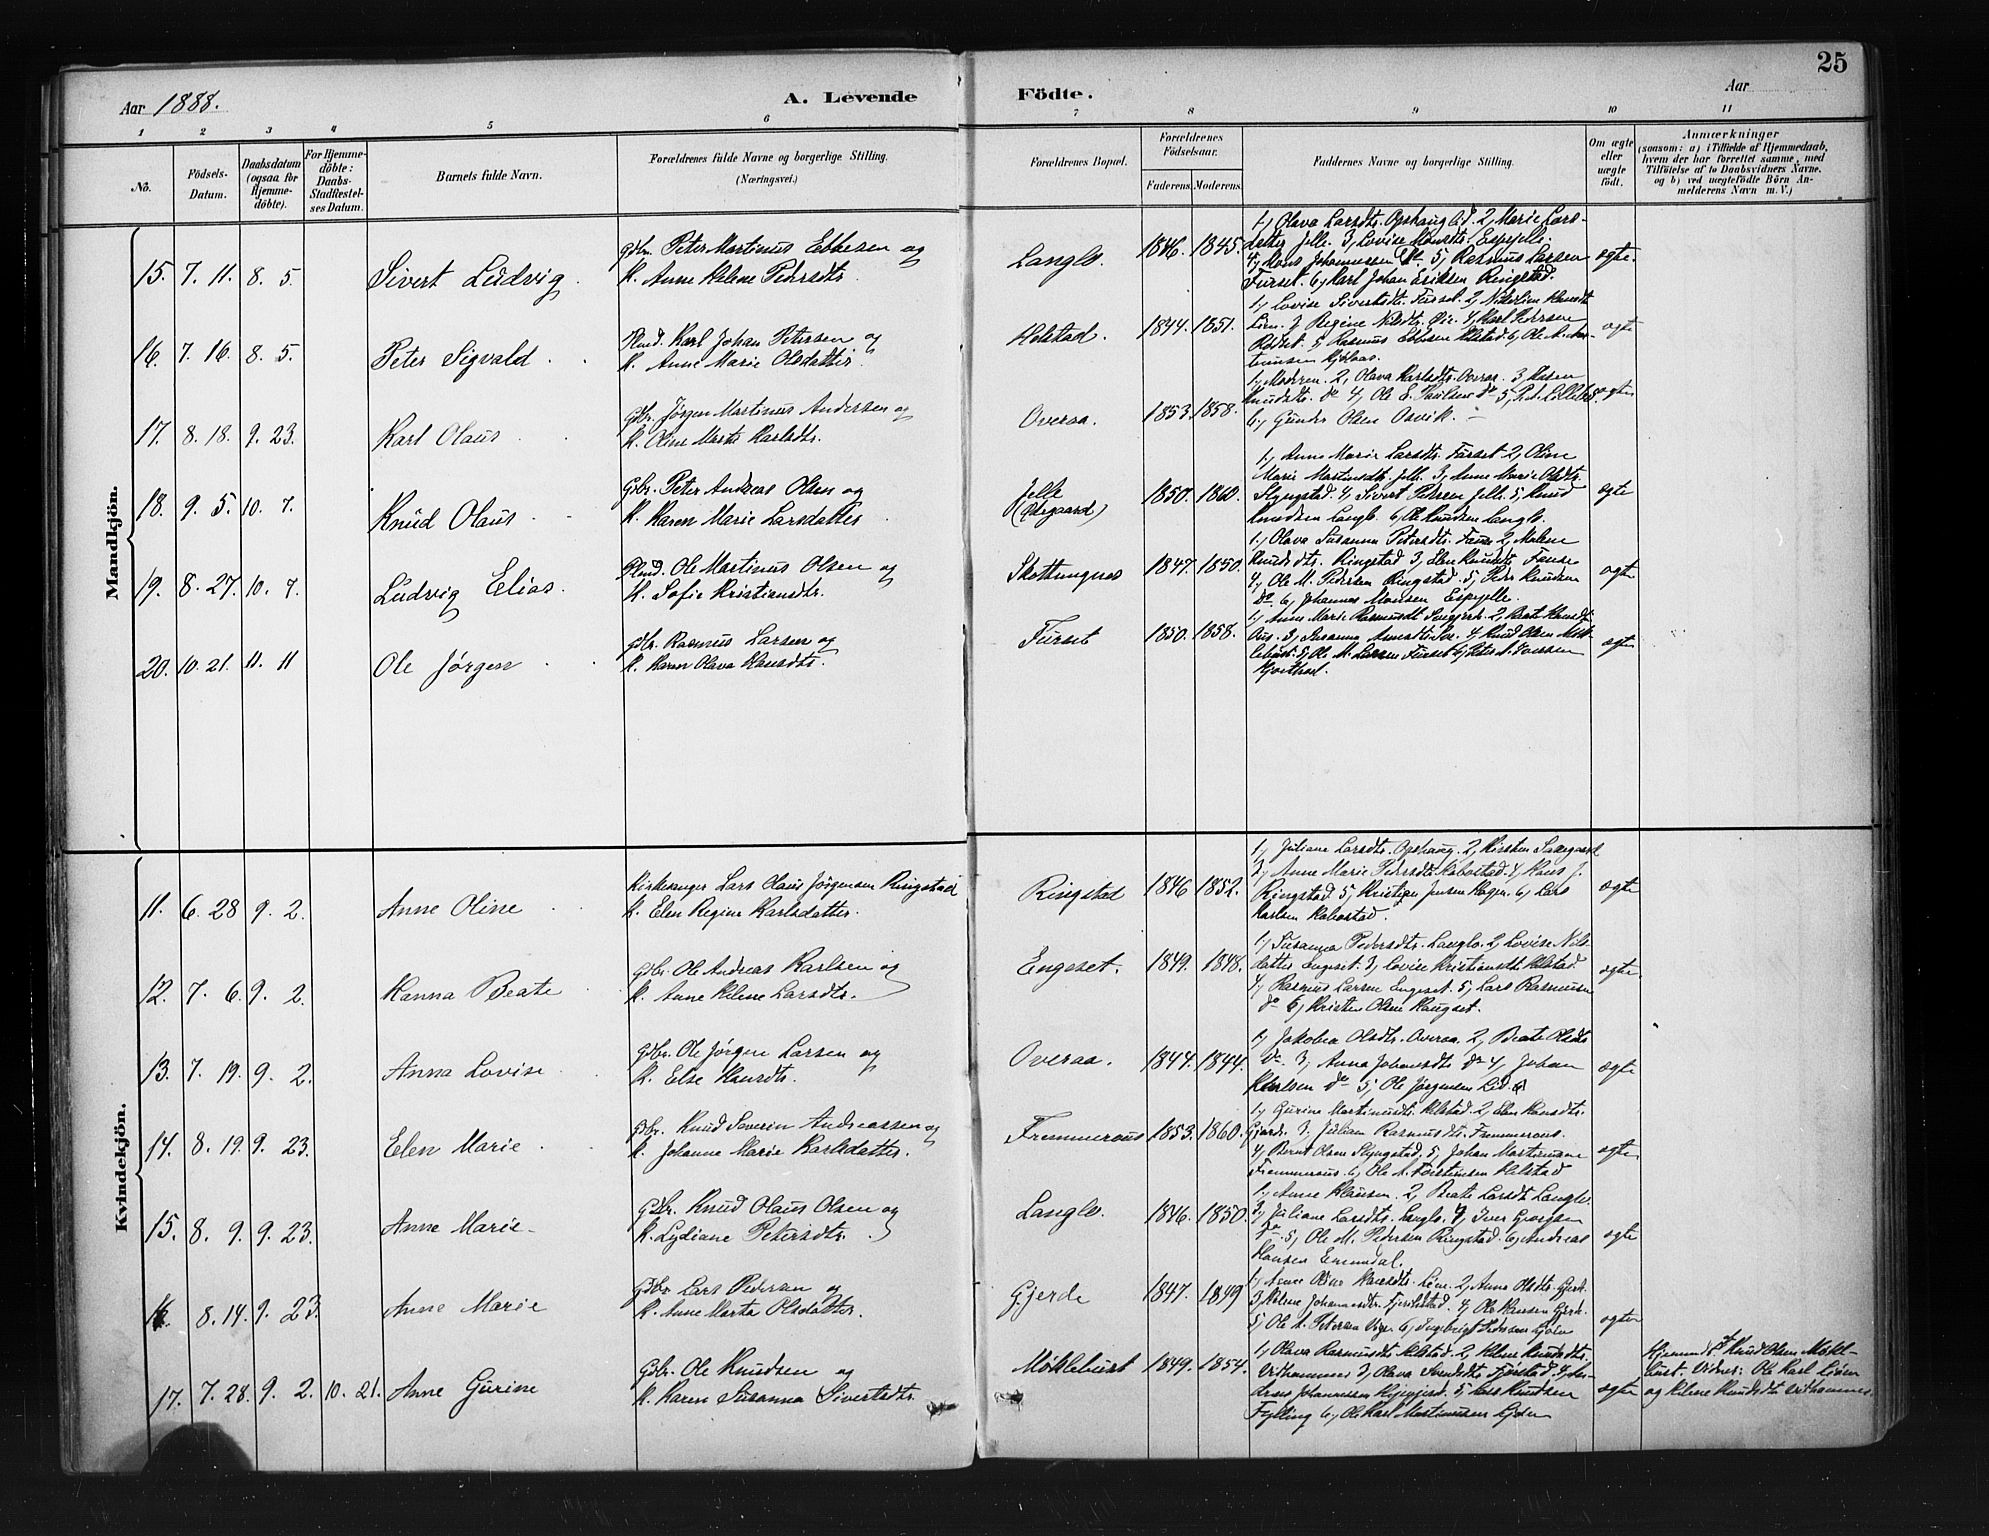 25
Aar 1888.
A. Levende Födte.
Aar
1 2 3 4 5 6 7 8 9 10 11
No.
Födsels-Datum.
Daabsdatum (ogsaa for Hjemmedöbte).
For Hjemmedöbte: Daabs-Stadfestelses Datum.
Barnets fulde Navn.
Forældrenes fulde Navne og borgerlige Stilling.
(Næringsvei.)
Forældrenes Bopæl.
Forældrenes Födselsaar.
Faderens. Moderens.
Faddernes Navne og borgerlige Stilling.
Om ægte eller uægte födt.
Anmærkninger
(saasom: a) i Tilfælde af Hjemmedaab, hvem der har forrettet samme, med Tilföielse af to Daabsvidners Navne, og b) ved uægtefödte Börn Anmelderens Navn m. V.)
Mandkjön.
15. 7. 11. 8. 5. Sivert Ludvig
Gbr. Peter Martinus Ebbesen og
K. Anne Helene Pedrsdtr.
Langlo. 1846. 1845.
1, Olava Larsdtr. Opshaug 2, Marie Lars-
datter Jelle. 3, Lovise Monsdtr. Espejelle.
4, Mons Johannessen do 5, Rasmus Larsen
Furset. 6, Karl Johan Eriksen Ringstad.
ægte.
16. 7. 16. 8. 5. Peter Sigvald
Plmd. Karl Johan Petersen og
K. Anne Marie Olsdatter
Helstad. 1844. 1851.
1, Lovise Sivertsdtr. Furset. 2,
3, Regine Nilsdtr. 4, Karl Pedersen
5, Rasmus Ebbesen Helstad. 6, Ole
ægte
17. 8. 18. 9. 23. Karl Olaus
Gbr. Jørgen Martinus Andersen og
K. Oline Marta Karlsdtr.
Overaa. 1853. 1858.
1, Moderen. 2, Olava Karlsdtr. Overaa. 3,
Knudsdtr. do 4, Ole E. do 5,
6, Gunder Olsen Osvik.
ægte
18. 9. 5. 10. 7. Knud Olaus
Gbr. Peter Andreas Olsen og
K. Karen Marie Larsdatter
Jelle
1850. 1860.
1, Anne Marie Larsdtr. Furset 2, Oline
Marie Martinusdtr. Jelle 3, Anne Marie Olsdtr.
Slyngstad. 4, Sivert Pedersen Jelle. 5, Knud
Knudsen Langlo. 6, Ole Knudsen Langlo.
ægte
19. 8. 27. 10. 7. Ludvig Elias.
Plmd. Ole Martinus Olsen og
K. Sofie Kristiansdtr.
Skottungnes 1847. 1850.
1, Olava Susanna Petersdtr. 2, Malene
Knudsdtr. Ringstad 3, Elen Knudsdtr.
4, Ole M. Pedersen Ringstad. 5, Peder Knudsen
do. 6, Johannes Monsen Espejelle.
ægte
20. 10. 21. 11. 11 Ole Jørgen
Gbr. Rasmus Larsen og
K. Karen Olava Hansdtr.
Furset 1850. 1858.
1, Anne Marie Rasmusdtr. 2, Beate
3, Susanna 4, Knud Olsen
5, Ole M. Larsen Furset 6, Peter
ægte
Kvindekjön.
11. 6. 28 9. 2. Anne Oline
Kirkesanger Lars Olaus Jørgensen Ringstad
K. Elen Regine Karlsdatter.
Ringstad 1846 1852.
1, Juliane Larsdtr. Opshaug. 2, Kirsten
3, Anne Marie Pedersdtr. 4, Hans J.
Ringstad. 5, Kristian Jensen Hagen. 6, Lars
Karlsen
ægte
12. 7. 6. 9. 2. Hanna Beate
Gbr. Ole Andreas Karlsen og
K. Anne Helene Larsdtr.
Engeset. 1849. 1848.
1, Susanna Pedersdtr. Langlo. 2, Lovise Nils-
datter Engeset. 3, Lovise Kristiansdtr. Helstad.
4, Rasmus Larsen Engeset. 5, Lars Rasmusen
do 6, Kristen Olsen Haugset.
ægte
13. 7. 19. 9. 2. Anna Lovise
Gbr. Ole Jørgen Larsen og
K. Else Hansdtr.
Overaa. 1844. 1844.
1, Jakobea Olsdtr. Overaa. 2, Beate Olsdtr.
do 3, Anna Johansdtr. do 4, Johan
Karlsen do 5, Ole Jørgensen Lid.
ægte
14. 8. 19. 9. 23. Elen Marie
Gbr. Knud Severin Andreassen og
K. Johanne Marie Karlsdatter.
Fremmeraas 1853. 1860.
1, Gurine Martinusdtr. Helstad. 2, Elen Hansdtr.
Gjerde. 3, Juliane Rasmusdtr. Fremmeraas.
4, Bernt Olsen Slyngstad. 5, Johan Martinusen
Fremmeraas. 6, Ole A. Torstensen Helstad
ægte
15. 8. 9. 9. 23. Anne Marie
Gbr. Knud Olaus Olsen og
K. Lydiane Petersdtr.
Langlo. 1846. 1850.
1, Anne Klausen. 2, Beate Larsdtr. Langlo.
3, Juliane Larsdtr. Langlo. 4, Iver
do. 5, Ole M. Pedersen Ringstad. 6, Andreas
Hansen Emmdal.
ægte
16. 8. 14. 9. 23. Anne Marie
Gbr. Lars Pedersen og
K. Anne Marta Olsdatter.
Gjerde 1847. 1849
1, Anne Oline Hansdtr. 2, Anne Olsdtr. Gjerde.
3, Helene Johannesdtr. 4, Ole Hansen Gjerde.
5, Ole A. Petersen 6, Ingebrigt Pedersen
ægte
17. 7. 28. 9. 2. 10. 21. Anne Gurine
Gbr. Ole Knudsen og
K. Karen Susanna Sivertsdtr.
Møklebust 1849. 1854.
1, Olava Rasmusdtr. Helstad. 2, Helene Knudsdtr.
Vidhammer 3, Olava Fjørstad. 4,
Johannessen 5, Lars Knudsen
Fylling 6, Ole Karl Martinusen
ægte
Hjemmed. af Knud Olsen Møkl-
bust. Vidner: Ole Karl
og Helene Knudsdtr. Vidhammer.